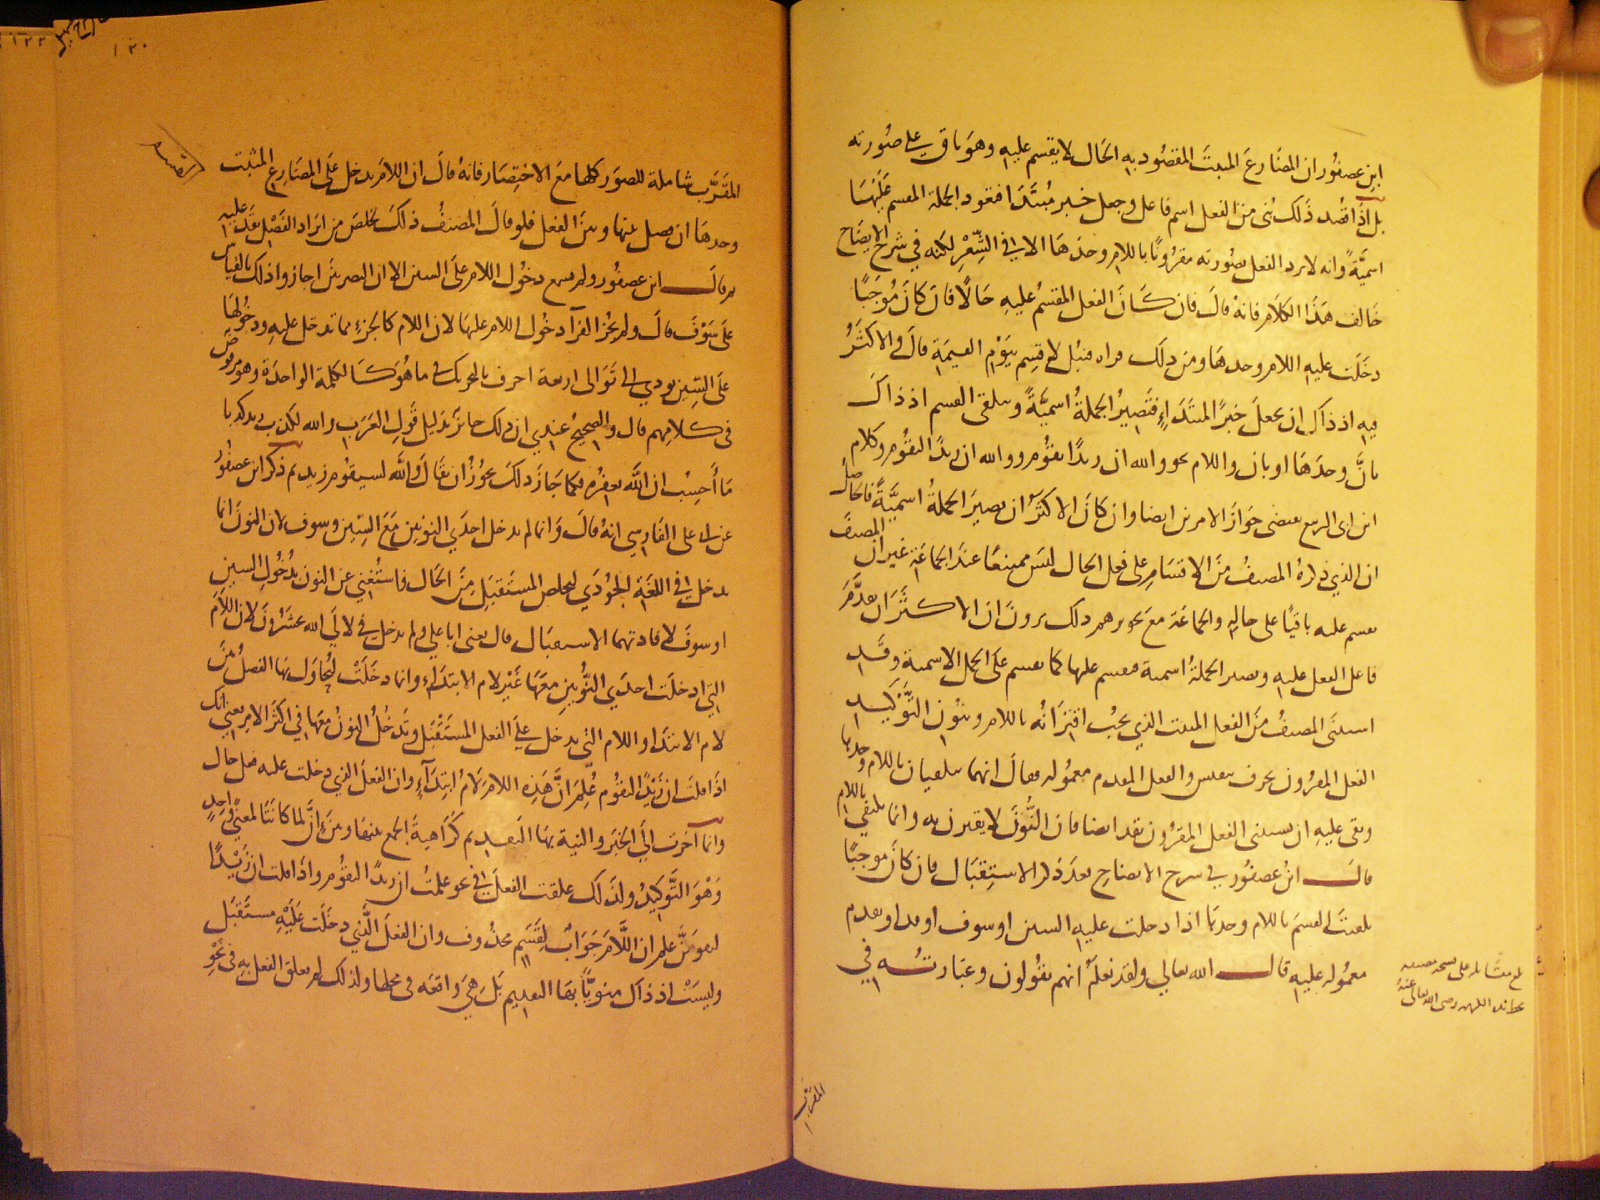 ابن عصفور ان المضارع المبت المقصود به الحال لا يقسم عليه وهو باق على صورته
بل اذا قصد ذلك بنى من الفعل اسم فاعل وجعل خبر مبتدا فعود الجملة المقسم عليها
اسمية وانه لا يرد الفعل بصورته مقرونا باللام وحدها الا فى الشعر لكنه في شرح الايضاح
خالف هذا الكلام فانه قال فان كان الفعل المقسم عليه حالا فان كان موجبا
دخلت عليه اللام وحدها ومن ذلك قراه قنبل لاقسم بيوم القيمة قال والاكثر
فيه اذ ذاك ان يجعل خبر المبتداء فتصير الجملة اسمية ويتلقى القسم اذ ذاك
بان وحدها او بان واللام نحو والله ان زيدا يقوم ووالله ان زيدا ليقوم وكلام
ابن ابى الربيع يقتضى جواز الامرين ايضا وان كان الاكثر ان يصير الجملة اسمية فالحاصل
ان الذي ذكره المصنف من الاقسام على فعل الحال ليس ممتنعا عند الجماعة غير ان المصنف
يقسم عليه باقيا على حاله والجماعة مع تجويزهم ذلك يرون ان الاكثر ان يقدم
فاعل الفعل عليه ويصير الجملة اسمية فيقسم عليها كما يقسم على الجمل الاسمية وقد
استثنى المصنف من الفعل المبت الذي يجب اقترانه باللام ونون التوكيد
الفعل المقرون بحرف تنفيس والفعل المقدم معموله فقال انهما يتلقيان باللام وحدها
وبقى عليه ان يستثنى الفعل المقرون بقد ايضا فان النون لا يقترن به وانما يلتقى باللام
قال ابن عصفور في شرح الايضاح بعد ذكر الاستقبال فان كان موجبا
تلقيت القسم باللام وحدها اذا دخلت عليه السين او سوف او قد او تقدم
معموله عليه قال الله تعالى ولقد نعلم انهم يقولون وعبارته في
المقرب
المقرب شاملة للصور كلها مع الاختصار فانه قال ان اللام تدخل على المضارع المثبت
وحدها ان فصل بينها وبين الفعل فلو قال المصنف ذلك لخلص من ايراد الفصل بقد عليه
ثم قال ابن عصفور ولم يسمع دخول اللام على السين الا ان البصريين اجازوا ذلك بالقياس
على سوف قال ولم يجز الفرآ دخول اللام عليها لان اللام كالجزء مما تدخل عليه ودخولها
على السين يودي الى توالى اربعة احرف بالتحريك فى ما هو كالكلمة الواحدة وهو مرفوض
فى كلامهم قال والصحيح عندي ان ذلك جائز بدليل قول العرب والله لكذب زيد كذبا
ما أحسب ان الله يغفره فكما جاز ذلك يجوز ان يقال والله لسيقوم زيد ثم ذكر ابن عصفور
عن ابى على الفارسي انه قال وانما لم يدخل احدي النونين مع السين وسوف لان النون انما
يدخل فى اللغة الجودي ليخلص المستقبل من الحال فاستغني عن النون بدخول السين
او سوف لافادتهما الاستقبال قال يعنى ابا على ولم يدخل فى لالى الله تحشرون لان اللام
التي ادخلت احدي النونين معها غير لام الابتداء وانما دخلت ليحاول بها الفصل من
لام الابتدا واللام التى يدخل على الفعل المستقبل وتدخل النون معها في اكثر الامر يعني انك
اذا قلت ان زيدا ليقوم علم ان هذه اللام لام ابتداء وان الفعل الذي دخلت عليه فعل حال
وانما اخرت الى الخبر والنية بها التقديم كراهية الجمع بينها وبين ان لما كانتا لمعنى واحد
وهو التوكيد ولذلك علقت الفعل فى نحو علمت ان زيدا ليقوم واذا قلت ان زيدا
ليقومن علم ان اللام جواب لقسم محذوف وان الفعل الذي دخلت عليه مستقبل
وليست اذ ذاك منويا بها التقديم بل هي واقعه فى محلها ولذلك لم تعلق الفعل به فى نحو